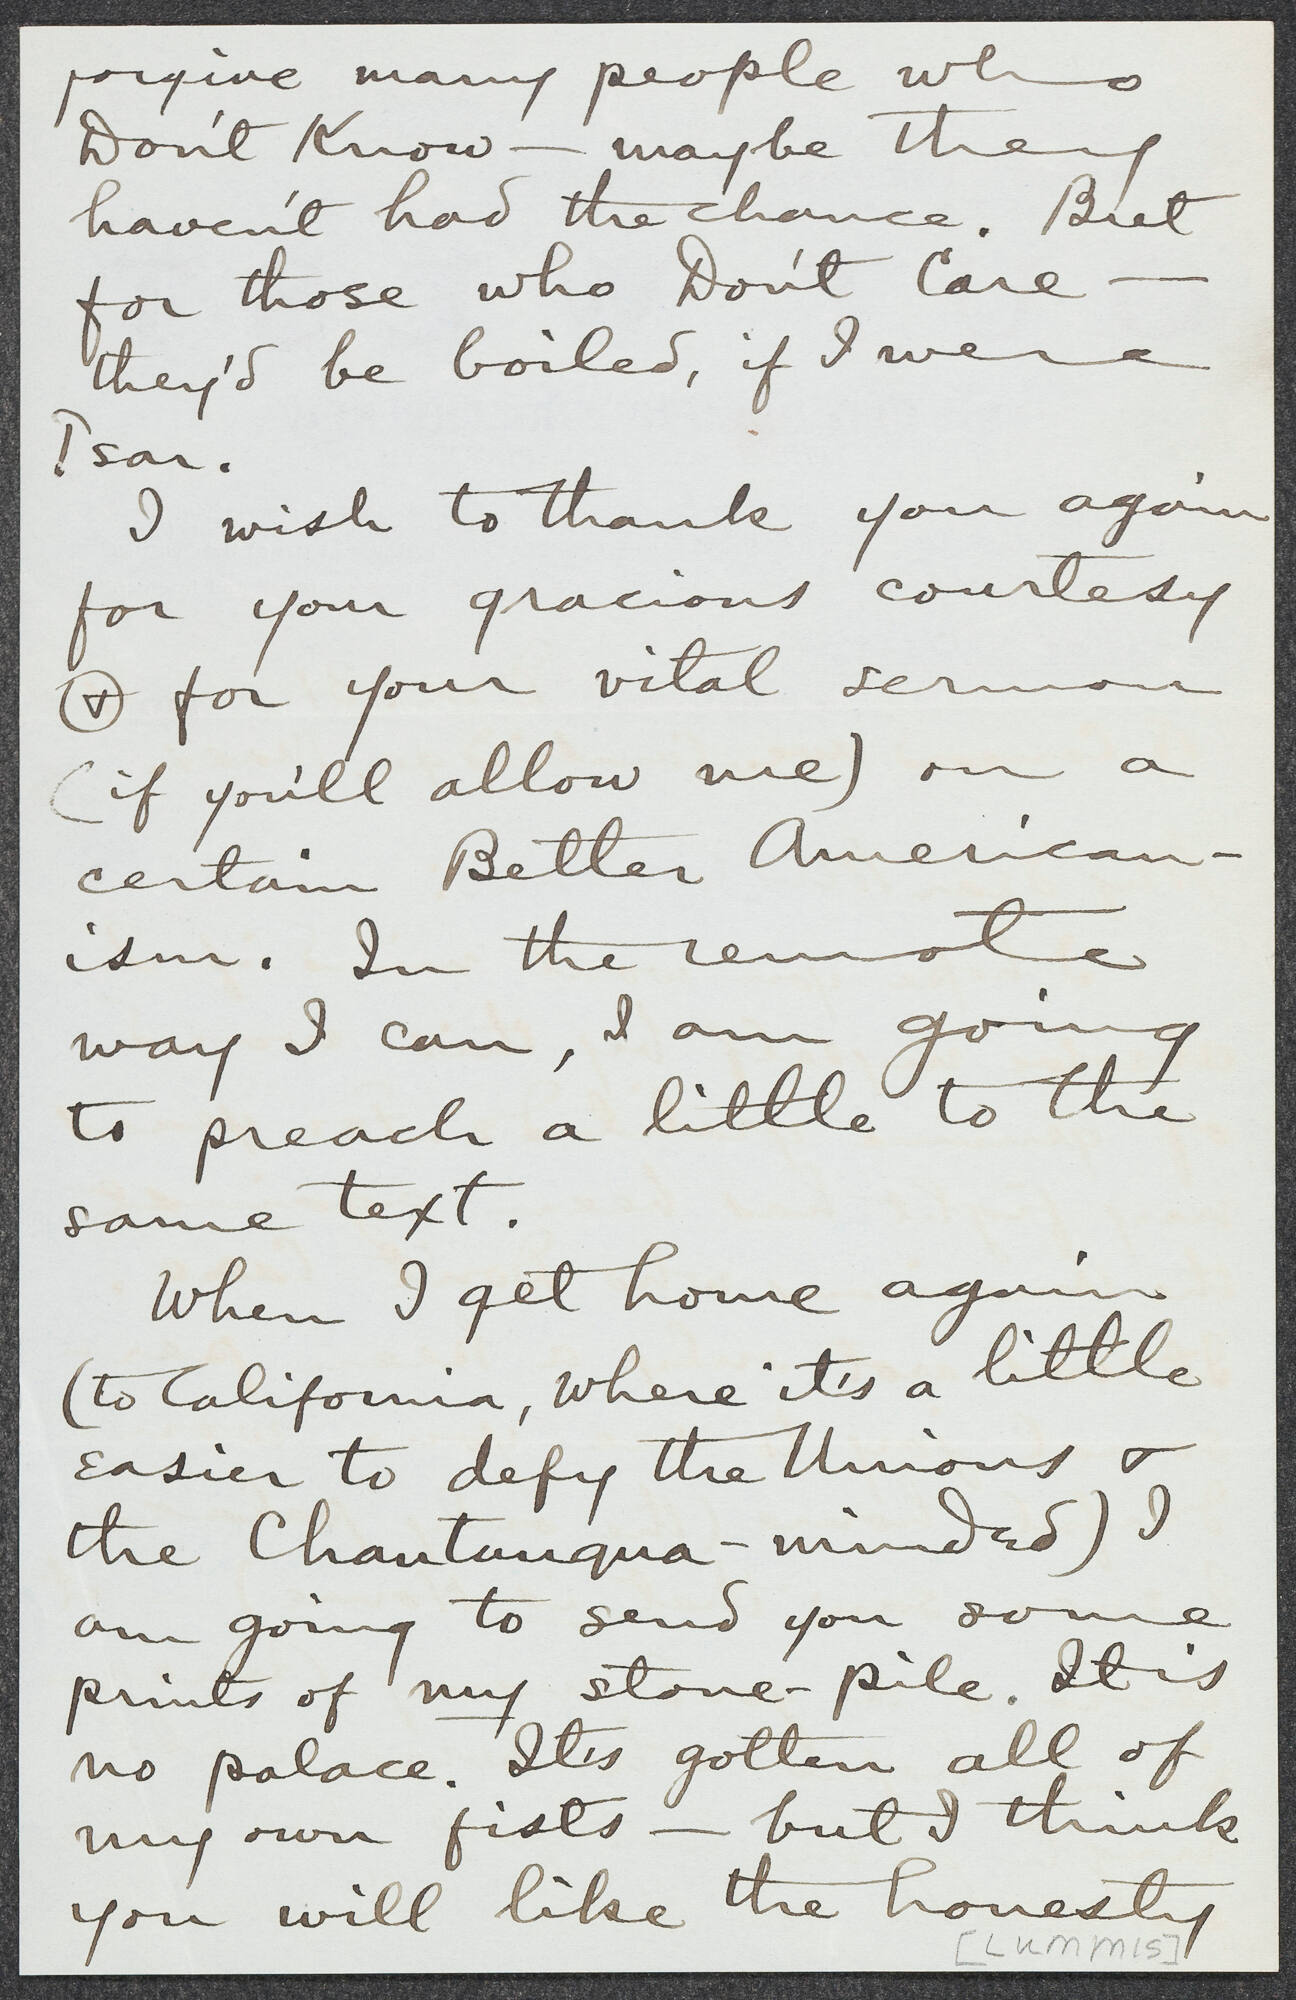 forgive many people who
Don't Know — maybe they
haven't had the chance. But
for those who Don't Care —
they'd be boiled, if I were
Tsar.
I wish to thank you again
for your gracious courtesy
& for your vital sermon
(if you'll allow me) on a
certain Better American-
ism. In the remote
way I can, I am going
to preach a little to the
same text.
When I get home again
(to California, where it's a little
easier to defy the Unions &
the Chautauqua-minded) I
am going to send you some
prints of my stone-pile. It is
no palace. It's gotten all of
my own fists — but I think
you will like the honesty
[LUMMIS]